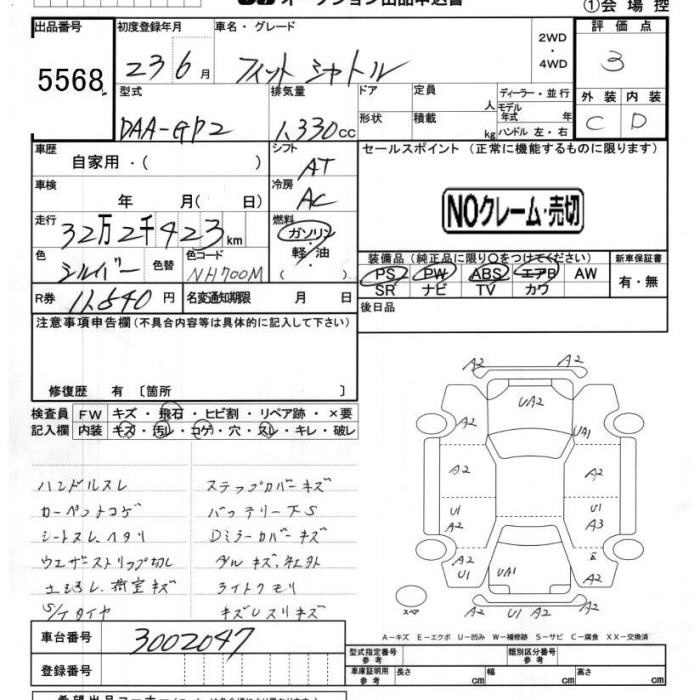 オークション出品申込書
①会場控
出品番号
5568
初度登録年月
23 6 月
車名・グレード
フィット シャトル
2WD
・
4WD
評価点
3
外装 内装
C D
型式
DAA-GP2
排気量
1,330cc
ドア
定員
人
ディーラー・並行
モデル
年式 年
形状
積載
kg
ハンドル 左・右
車歴
自家用・( )
シフト
AT
セールスポイント (正常に機能するものに限ります)
車検
年 月( 日)
冷房
AC
NOクレーム・売切
走行
32万2千423km
燃料
ガソリン
・
軽・油
( )
色
シルバー
色替
色コード
NH700M
装備品(純正品に限り○をつけてください)
新車保証書
PS PW ABS エアB AW
SR ナビ TV カワ
有・無
R券
11,540 円
名変通知期限 月 日
後日品
注意事項申告欄(不具合内容等は具体的に記入して下さい)
修復歴 有 〔箇所 〕
検査員
記入欄
FW
キズ・飛石・ヒビ割・リペア跡・×要
内装
キズ・汚レ・コゲ・穴・スレ・キレ・破レ
ハンドルスレ
ステップカバーキズ
カーペットコゲ
バッテリー下S
シートスレ、ヘタリ
Dミラーカバーキズ
ウエザストリップ切レ
ライトクモリ
荷室キズ
S/Tタイヤ
キズUスリキズ
A2
A2
A2
A2
UA2
UA1
A2
A2
U1
A2
U1
A3
A2
U1
UA1
E
A2
A2
A2
スペア
A-キズ E-エクボ U-凹み W-補修跡 S-サビ C-腐食 XX-交換済
車台番号
3002047
登録番号
型式指定番号
参考
類別区分番号
参考
車庫証明用
参考
長さ cm
幅 cm
高さ cm